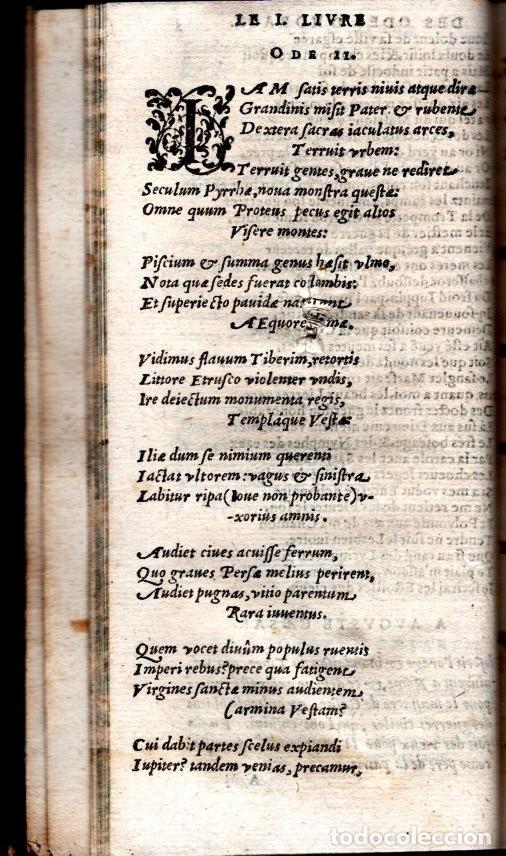 LE I. LIVRE
ODE II.
IAM satis terris niuis atque diræ
Grandinis misit Pater & rubente
Dextera sacras iaculatus arces,
Terruit vrbem:
Terruit gentes, graue ne rediret
Seculum Pyrrhæ, noua monstra questæ:
Omne quum Proteus pecus egit altos
Visere montes:
Piscium & summa genus hæsit vlmo,
Nota quæ sedes fuerat colombis:
Et superiecto pauidæ natarunt
AEquore mæ.
Vidimus flauum Tiberim, retortis
Littore Etrusco violenter vndis,
Ire deiectum monumenta regis,
Templáque Vestæ:
Iliæ dum se nimium querenti
Iactat vltorem: vagus & sinistra
Labitur ripa (Ioue non probante) v-
-xorius amnis.
Audiet ciues acuisse ferrum,
Quo graues Persæ melius perirent,
Audiet pugnas, vitio parentum
Rara iuuentus.
Quem vocet diuûm populus ruentis
Imperi rebus? prece qua fatigent
Virgines sanctæ minus audientem
Carmina Vestam?
Cui dabit partes scelus expiandi
Iupiter? tandem venias, precamur,
todocoleccion